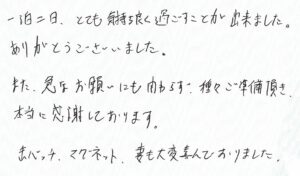 一泊二日、とても気持ち良く過ごすことが出来ました。
ありがとうございました。
また、急なお願いにも関わらず、種々ご準備頂き、
本当に感謝しております。
缶バッチ、マグネット、妻も大変喜んでおりました。